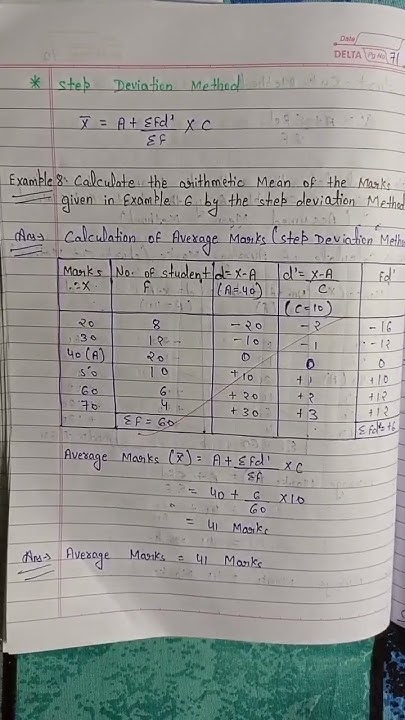 Date
DELTA Pg No. 71
* Step Deviation Method
X̄ = A + ΣFd' / ΣF × C
Example 8: Calculate the arithmetic Mean of the Marks
given in Example 6 by the step deviation Method
Ans→ Calculation of Average Marks (Step Deviation Metho
Marks =X | No. of student F | d=X-A (A=40) | d'=X-A / C (C=10) | Fd'
20 | 8 | -20 | -2 | -16
30 | 12 | -10 | -1 | -12
40(A) | 20 | 0 | 0 | 0
50 | 10 | +10 | +1 | +10
60 | 6 | +20 | +2 | +12
70 | 4 | +30 | +3 | +12
ΣF = 60 | ΣFd'= +6
Average Marks (X̄) = A + ΣFd' / ΣF × C
= 40 + 6 / 60 × 10
= 41 Marks
Ans→ Average Marks = 41 Marks